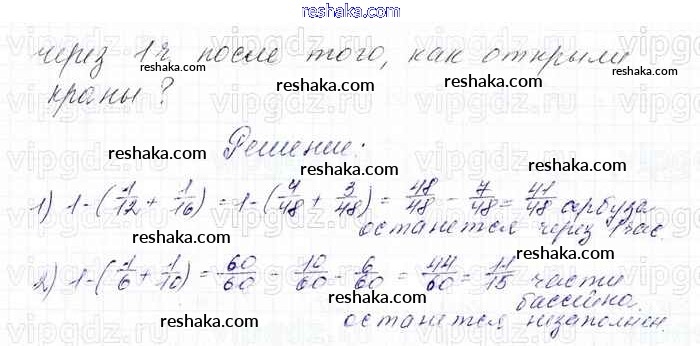 reshaka.com
через 1ч после того, как открыли
краны?
Решение:
1) 1-(1/12 + 1/16) = 1-(4/48 + 3/48) = 48/48 - 7/48 = 41/48 арбуза
останется через 1 час.
2) 1-(1/6 + 1/10) = 60/60 - 10/60 - 6/60 = 44/60 = 11/15 части
бассейна
останется незаполнен.
reshaka.com
reshaka.com
reshaka.com
reshaka.com
reshaka.com
reshaka.com
reshaka.com
reshaka.com
reshaka.com
reshaka.com
vipgdz.ru